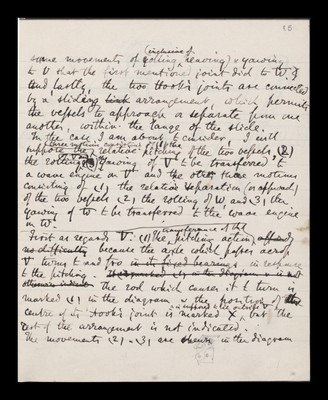 15
(inclusive of
some movements of rolling, heaving) & yawing
to V that the first mentioned joint did to W &
lastly, the two Hook's joints are connected
by a sliding link arrangement, which permits
the vessels to approach or separate from one
another, within the range of the slide.
In the case I am about to consider, I will
three motions consisting of (1) the
suppose the relative pitching of the two vessels, (2)
the rolling & (3) yawing of V to be transferred to
a wave engine on V and the other three motions
consisting of (1) the relative separation (or approach)
of the two vessels (2) the rolling of W and (3) the
yawing of W to be transferred to the wave engine
on W.
transference of the
First as regards V. (1) the pitching action affords
no difficulty because the axle which passes across
V turns to and fro in its fixed bearings in response
to the pitching. It is marked (1) in the diagram & is not
otherwise indicated the rod which causes it to turn is
marked (1) in the diagram & the position of the
centre of its Hook's joint is marked X, but the
rest of the arrangement is not indicated.
The movements (2) & (3) are shewn in the diagram